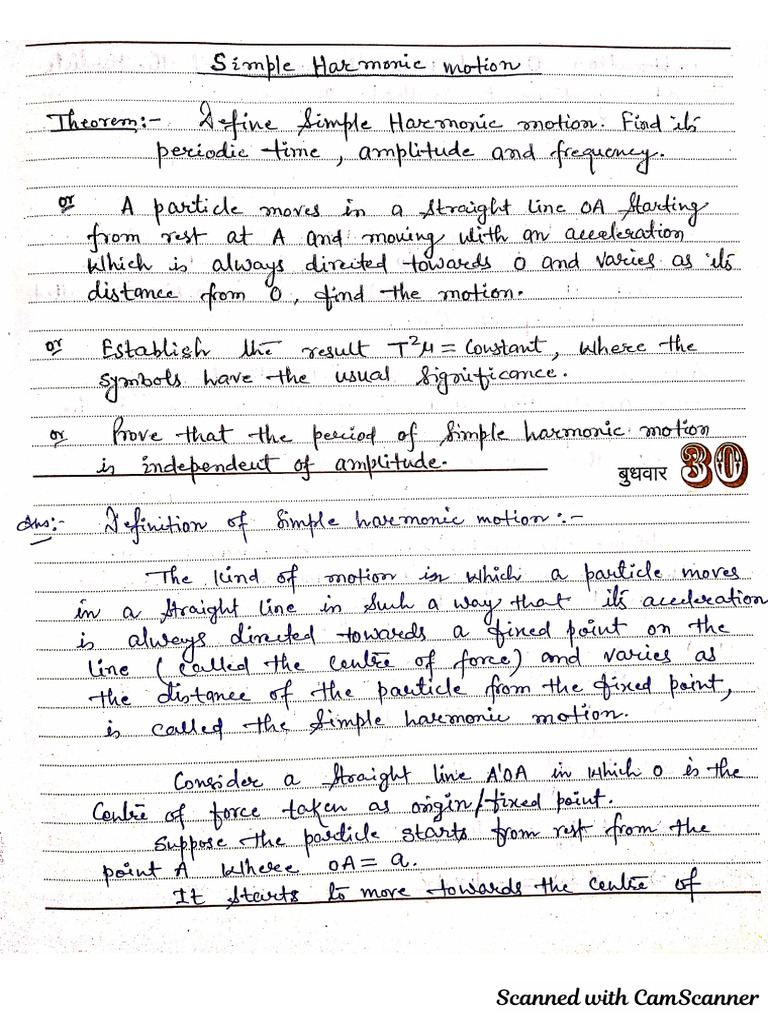 Simple Harmonic motion
Theorem:- Define Simple Harmonic motion. Find its
periodic time, amplitude and frequency.
or A particle moves in a straight line OA starting
from rest at A and moving with an acceleration
which is always directed towards O and varies as its
distance from O, find the motion.
or Establish the result T²μ = Constant, where the
symbols have the usual significance.
or Prove that the period of simple harmonic motion
is independent of amplitude.
बुधवार 30
Ans:- Definition of Simple harmonic motion:-
The kind of motion in which a particle moves
in a straight line in such a way that its acceleration
is always directed towards a fixed point on the
line (called the centre of force) and varies as
the distance of the particle from the fixed point,
is called the simple harmonic motion.
Consider a straight line A'OA in which O is the
Centre of force taken as origin/fixed point.
Suppose the particle starts from rest from the
point A where OA = a.
It starts to move towards the centre of
Scanned with CamScanner